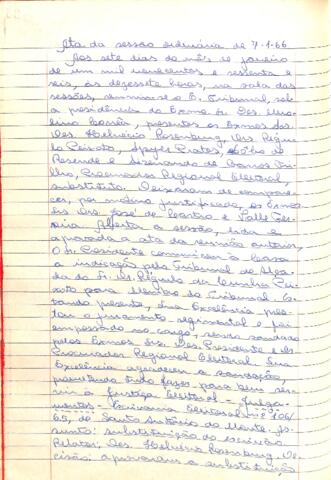 Ata da sessão ordinária de 7-1-66
Aos sete dias do mês de janeiro
de um mil novecentos e sessenta e
seis, às dezessete horas, na sala das
sessões, reuniu-se o E. Tribunal, sob
a presidência do Exmo Sr. Des.
presentes os Exmos Srs.
Des. Helvécio Rosenburg, Drs.
Peixoto, Prates, de
Rezende e de Barros
lho, Procurador Regional Eleitoral,
substituto. Deixaram de compare-
cer, por motivo justificado, os Exmos
Srs. Drs. José de Castro e Valle Fer-
reira. Aberta a sessão, lida e
aprovada a ata da reunião anterior,
O Sr. Presidente comunicou à Casa
a indicação pelo Tribunal de Alça-
da do Sr. Dr. da Cunha Pei-
xoto para Membro do Tribunal. Es-
tando presente, Sua Excelência pres-
tou o juramento regimental e foi
empossado no cargo, sendo saudado
pelos Exmos Srs. Des. Presidente e Dr.
Procurador Regional Eleitoral. Sua
Excelência agradeceu a saudação,
prometendo tudo fazer para bem ser-
vir à Justiça Eleitoral - Julga-
mentos - Eleitoral - nº 106/
65, de Santo Antônio do Monte. As-
sunto: substituição do escrivão
Relator, Des. Helvécio Rosenburg. De-
cisão: aprovaram a substituição